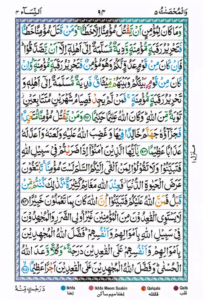 وَالْمُحْصَنٰتُ ٥ ٩٣ اَلنِّسَآء ٤
وَمَا كَانَ لِمُؤْمِنٍ اَنْ يَّقْتُلَ مُؤْمِنًا اِلَّا خَطَـًٔا ۚ وَمَنْ قَتَلَ مُؤْمِنًا خَطَـًٔا
فَتَحْرِيْرُ رَقَبَةٍ مُّؤْمِنَةٍ وَّدِيَةٌ مُّسَلَّمَةٌ اِلٰٓى اَهْلِهٖٓ اِلَّآ اَنْ يَّصَّدَّقُوْا ؕ
فَاِنْ كَانَ مِنْ قَوْمٍ عَدُوٍّ لَّكُمْ وَهُوَ مُؤْمِنٌ فَتَحْرِيْرُ رَقَبَةٍ مُّؤْمِنَةٍ ؕ وَاِنْ
كَانَ مِنْ قَوْمٍۭ بَيْنَكُمْ وَبَيْنَهُمْ مِّيْثَاقٌ فَدِيَةٌ مُّسَلَّمَةٌ اِلٰٓى اَهْلِهٖ وَ
تَحْرِيْرُ رَقَبَةٍ مُّؤْمِنَةٍ ۚ فَمَنْ لَّمْ يَجِدْ فَصِيَامُ شَهْرَيْنِ مُتَتَابِعَيْنِ
تَوْبَةً مِّنَ اللّٰهِ ؕ وَكَانَ اللّٰهُ عَلِيْمًا حَكِيْمًا ۝ وَمَنْ يَّقْتُلْ مُؤْمِنًا مُّتَعَمِّدًا
فَجَزَآؤُهٗ جَهَنَّمُ خَالِدًا فِيْهَا وَغَضِبَ اللّٰهُ عَلَيْهِ وَلَعَنَهٗ وَاَعَدَّ لَهٗ
عَذَابًا عَظِيْمًا ۝ يٰٓاَيُّهَا الَّذِيْنَ اٰمَنُوْٓا اِذَا ضَرَبْتُمْ فِيْ سَبِيْلِ اللّٰهِ
فَتَبَيَّنُوْا وَلَا تَقُوْلُوْا لِمَنْ اَلْقٰٓى اِلَيْكُمُ السَّلٰمَ لَسْتَ مُؤْمِنًا ۚ تَبْتَغُوْنَ
عَرَضَ الْحَيٰوةِ الدُّنْيَا ؗ فَعِنْدَ اللّٰهِ مَغَانِمُ كَثِيْرَةٌ ؕ كَذٰلِكَ كُنْتُمْ مِّنْ
قَبْلُ فَمَنَّ اللّٰهُ عَلَيْكُمْ فَتَبَيَّنُوْا ؕ اِنَّ اللّٰهَ كَانَ بِمَا تَعْمَلُوْنَ خَبِيْرًا ۝
لَا يَسْتَوِي الْقٰعِدُوْنَ مِنَ الْمُؤْمِنِيْنَ غَيْرُ اُولِي الضَّرَرِ وَالْمُجٰهِدُوْنَ
فِيْ سَبِيْلِ اللّٰهِ بِاَمْوَالِهِمْ وَاَنْفُسِهِمْ ؕ فَضَّلَ اللّٰهُ الْمُجٰهِدِيْنَ
بِاَمْوَالِهِمْ وَاَنْفُسِهِمْ عَلَى الْقٰعِدِيْنَ دَرَجَةً ؕ وَكُلًّا وَّعَدَ اللّٰهُ
الْحُسْنٰى ؕ وَفَضَّلَ اللّٰهُ الْمُجٰهِدِيْنَ عَلَى الْقٰعِدِيْنَ اَجْرًا عَظِيْمًا ۝
Ikhfa Ikhfa Meem Saakin Qalqala Qalb
اخفا اخفا میم ساکن قلقلہ قلب